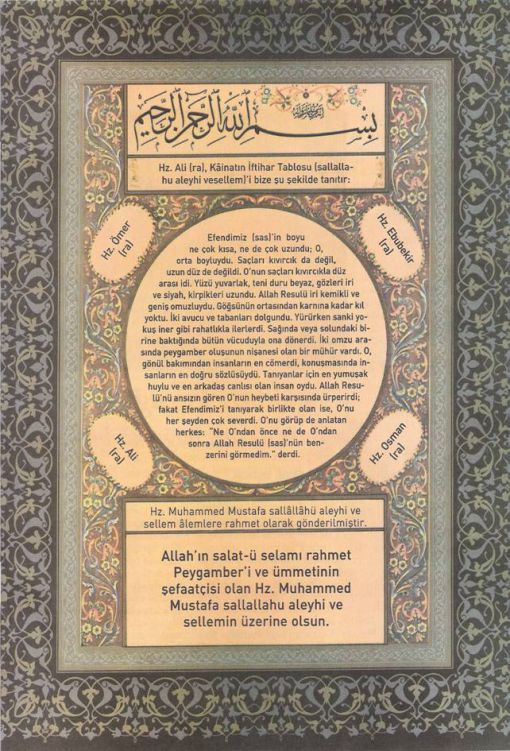 بِسْمِ اللّٰهِ الرَّحْمٰنِ الرَّحِيمِ
Hz. Ali (ra), Kâinatın İftihar Tablosu (sallalla-
hu aleyhi vesellem)'i bize şu şekilde tanıtır:
Hz. Ömer
(ra)
Hz. Ebubekir
(ra)
Efendimiz (sas)'in boyu
ne çok kısa, ne de çok uzundu; O,
orta boyluydu. Saçları kıvırcık da değil,
uzun düz de değildi. O'nun saçları kıvırcıkla düz
arası idi. Yüzü yuvarlak, teni duru beyaz, gözleri iri
ve siyah, kirpikleri uzundu. Allah Resulü iri kemikli ve
geniş omuzluydu. Göğsünün ortasından karnına kadar kıl
yoktu. İki avucu ve tabanları dolgundu. Yürürken sanki yo-
kuş iner gibi rahatlıkla ilerlerdi. Sağında veya solundaki bi-
rine baktığında bütün vücuduyla ona dönerdi. İki omzu ara-
sında peygamber oluşunun nişanesi olan bir mühür vardı. O,
gönül bakımından insanların en cömerdi, konuşmasında in-
sanların en doğru sözlüsüydü. Tanıyanlar için en yumuşak
huylu ve en arkadaş canlısı olan insan oydu. Allah Resu-
lü'nü ansızın gören O'nun heybeti karşısında ürperirdi;
fakat Efendimiz'i tanıyarak birlikte olan ise, O'nu
her şeyden çok severdi. O'nu görüp de anlatan
herkes: "Ne O'ndan önce ne de O'ndan
sonra Allah Resulü (sas)'nün ben-
zerini görmedim." derdi.
Hz. Ali
(ra)
Hz. Osman
(ra)
Hz. Muhammed Mustafa sallâllâhü aleyhi ve
sellem âlemlere rahmet olarak gönderilmiştir.
Allah'ın salat-ü selamı rahmet
Peygamber'i ve ümmetinin
şefaatçisi olan Hz. Muhammed
Mustafa sallallahu aleyhi ve
sellemin üzerine olsun.